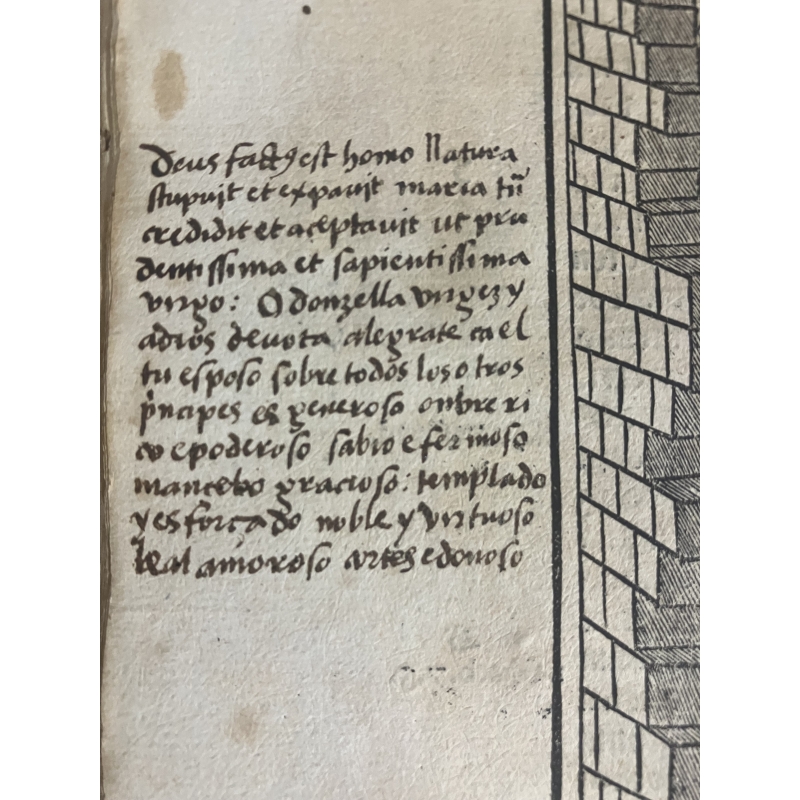 Deus factꝯ est homo Natura
stupuit et expavit maria tn̄
credidit et aceptavit ut pru
dentissima et sapientissima
virgo: O donzella virgez y
adios devota alegrate ca el
tu esposo sobre todos los otros
p̃ncipes es generoso onbre ri
co e poderoso sabio e fermoso
mancebo gracioso: templado
y esforçado noble y virtuoso
leal amoroso cortes e donoso